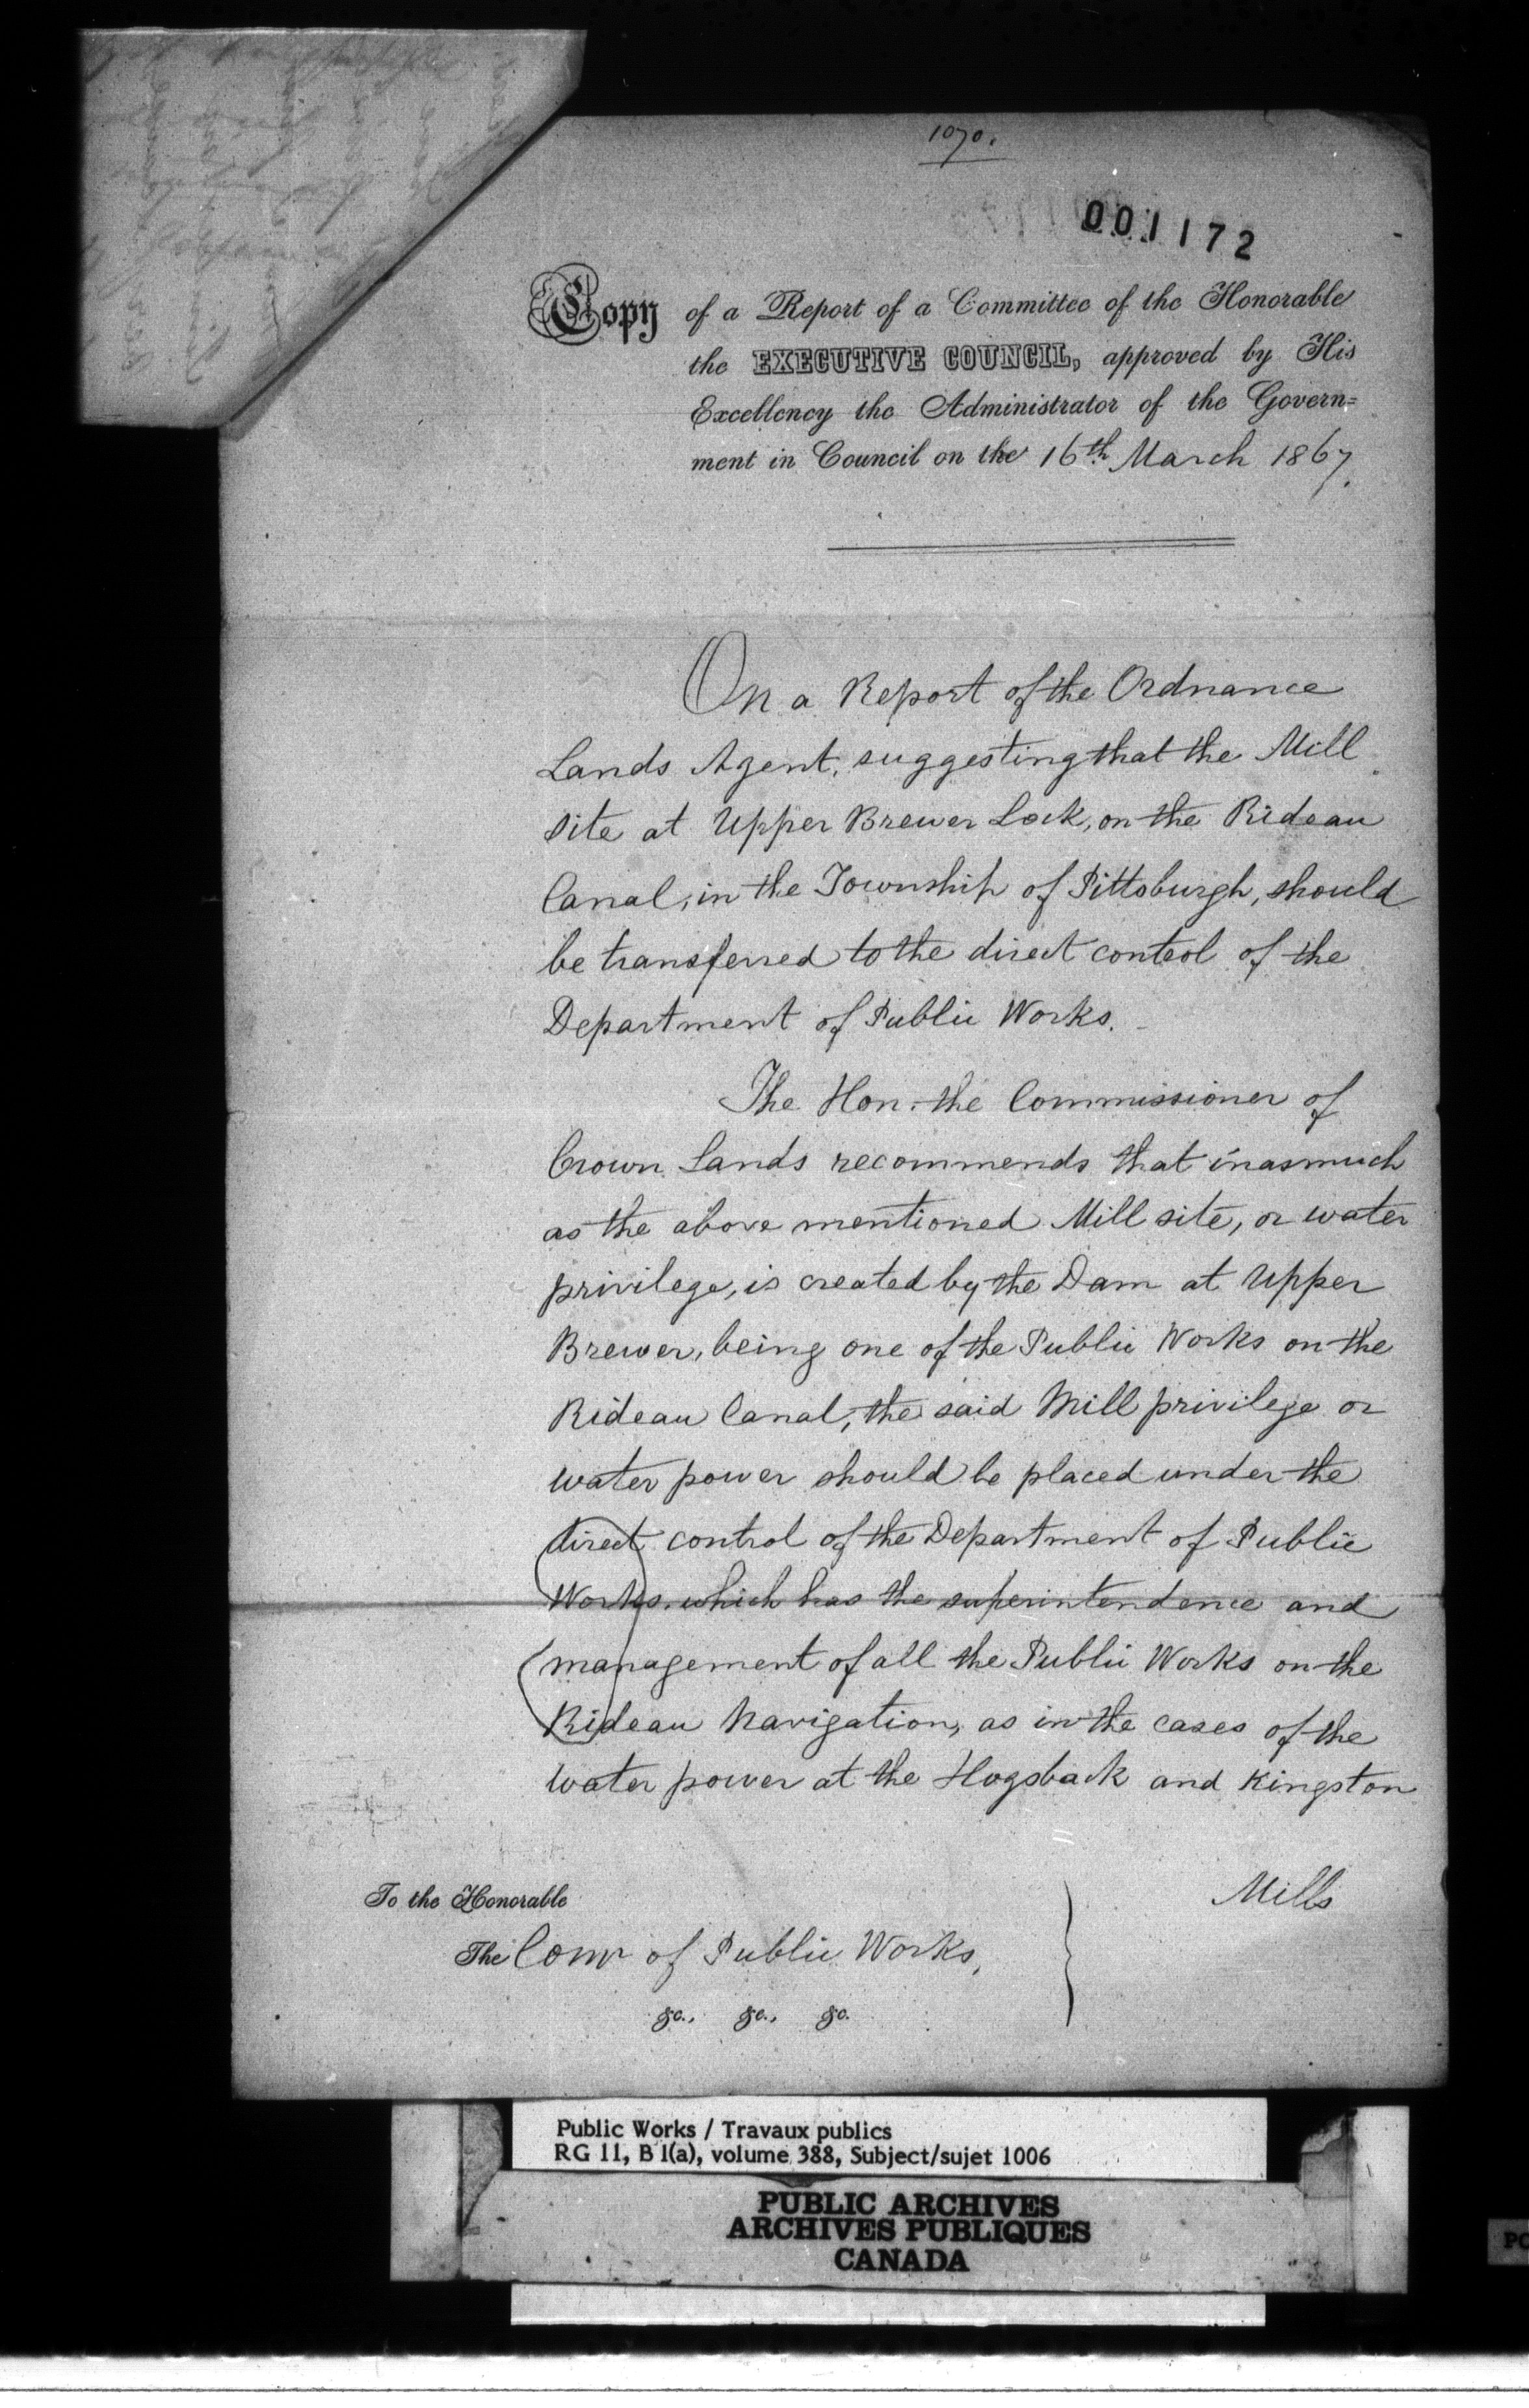 1070.
001172
Copy of a Report of a Committee of the Honorable
the EXECUTIVE COUNCIL, approved by His
Excellency the Administrator of the Govern=
ment in Council on the 16th March 1867.
On a Report of the Ordnance
Lands Agent, suggesting that the Mill
site at Upper Brewer Lock, on the Rideau
Canal, in the Township of Pittsburgh, should
be transferred to the direct control of the
Department of Public Works.
The Hon. the Commissioner of
Crown Lands recommends that inasmuch
as the above mentioned Mill site, or water
privilege, is created by the Dam at Upper
Brewer, being one of the Public Works on the
Rideau Canal, the said Mill privilege or
water power should be placed under the
direct control of the Department of Public
Works, which has the superintendence and
management of all the Public Works on the
Rideau Navigation, as in the cases of the
water power at the Hogsback and Kingston
Mills
To the Honorable
The Comr of Public Works,
&c., &c., &c.
Public Works / Travaux publics
RG 11, B 1(a), volume 388, Subject/sujet 1006
PUBLIC ARCHIVES
ARCHIVES PUBLIQUES
CANADA